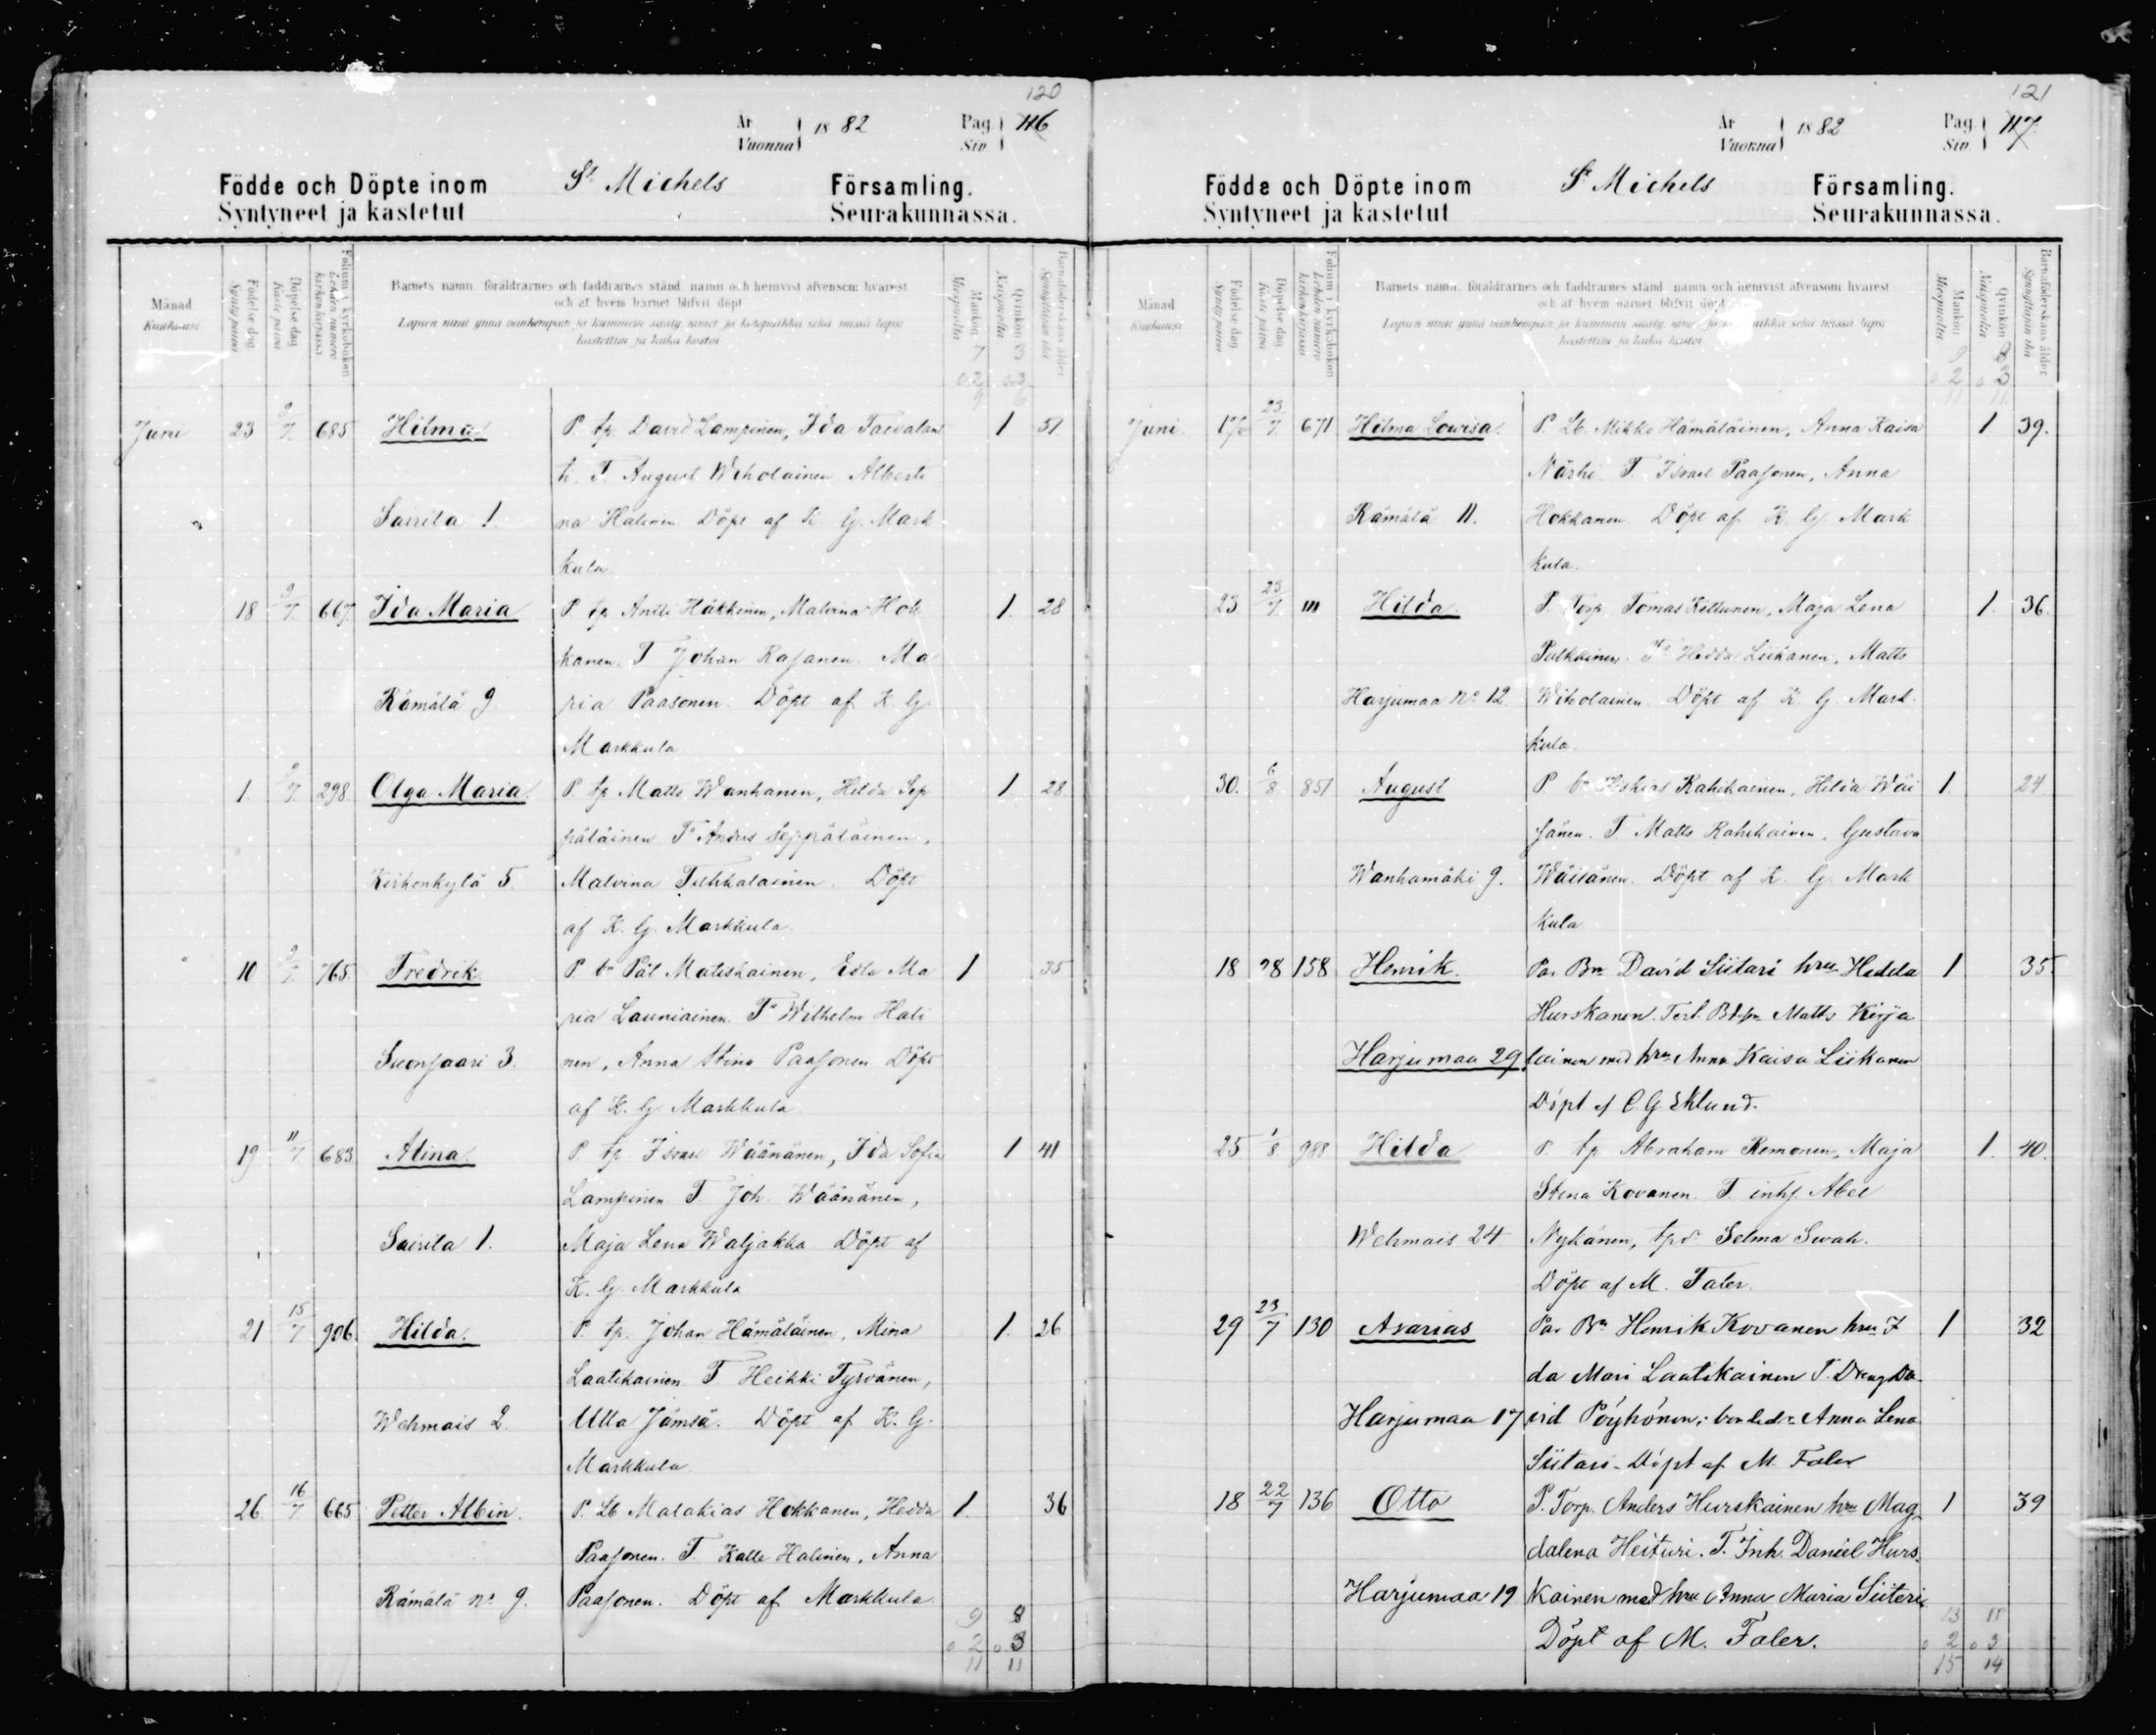 120
År Vuonna 1882 Pag. Siv. 116
Födde och Döpte inom St Michels Församling.
Syntyneet ja kastetut Seurakunnassa.
Månad Kuukausi
Födelse dag Synty päivä
Döpelse dag Kaste päivä
Folium i kyrkoboken Lehden numero kirkonkirjassa
Barnets namn, föräldrarnes och faddrarnes stånd, namn och hemvist äfvensom hvarest
och af hvem barnet blifvit döpt
Lapsen nimi ynnä vanhempain ja kummein sääty, nimet ja kotopaikka sekä missä lapsi
kastettiin ja kuka kastoi
Mankön Miespuolta
Qvinkön Naispuolta
Barnaföderskans ålder Synnyttäjän ikä
7 3
o. 2 o. 3
9 6
Juni 23 9/7. 685 Hilma P. tp. David Lampinen, Ida Taivalan 1 31
h. F. August Weholainen Alberti
Sairila 1. na Halinen Döpt af K. G. Mark
kula.
18 9/7. 667. Ida Maria P. tp. Antti Häkkinen, Malvina Hok 1. 28
kanen. F Johan Rasanen. Ma
Rämälä 9. ria Paasonen. Döpt af K. G.
Markkula
1. 9/7. 298. Olga Maria. P. tp. Matts Wanhanen, Hilda Sep 1. 28
päläinen F. Anders Seppäläinen,
Kirkonkylä 5. Malvina Tuhkalainen. Döpt
af K. G. Markkula.
10 9/7 765. Fredrik P. br Pål Matiskainen, Edla Ma 1 35
ria Launiainen. F. Wilhelm Hali
Suonsaari 3. nen, Anna Stina Paasonen Döpt
af K. G. Markkula.
19 11/7. 683 Alina. P. tp. Israel Wäänänen, Ida Sofia 1 41
Lampinen F. Joh. Wäänänen,
Sairila 1. Maja Lena Waljakka. Döpt af
K. G. Markkula
21 15/7 906. Hilda. P. tp. Johan Hämäläinen, Mina 1. 26
Laatikainen. F Heikki Tyrvänen,
Wehmais 2. Ulla Jämsä. Döpt af K. G.
Markkula
26. 16/7 665 Petter Albin. P. Lb Malakias Hokkanen, Hedda 1. 36
Paasonen. F. Kalle Halinen, Anna
Rämälä No 9. Paasonen. Döpt af Markkula.
9 8
o 2 o. 3
11 11
121
År Vuonna 1882 Pag. Siv. 117.
Födde och Döpte inom St Michels Församling.
Syntyneet ja kastetut Seurakunnassa.
Månad Kuukausi
Födelse dag Synty päivä
Döpelse dag Kaste päivä
Folium i kyrkoboken Lehden numero kirkonkirjassa
Barnets namn, föräldrarnes och faddrarnes stånd, namn och hemvist äfvensom hvarest
och af hvem barnet blifvit döpt
Lapsen nimi ynnä vanhempain ja kummein sääty, nimet ja kotopaikka sekä missä lapsi
kastettiin ja kuka kastoi
Mankön Miespuolta
Qvinkön Naispuolta
Barnaföderskans ålder Synnyttäjän ikä
9 8
o 2 o 3
11 11
Juni. 17/6 23/7. 671 Hilma Lowisa. P. Lb. Mikko Hämäläinen, Anna Kaisa 1 39.
Närhi. F. Israel Paasonen, Anna
Rämälä 11. Hokkanen Döpt af K. G. Mark
kula.
23 23/7. 111 Hilda. P. Torp. Tomas Kettunen, Maja Lena 1. 36.
Pulkkinen. F. Hedda Liikanen, Matts
Harjumaa No 12. Wiholainen. Döpt af K. G. Mark
kula.
30. 6/8 851 August P. br Heskias Rahikainen, Hilda Wäi 1. 24
sänen. F. Matts Rahikainen, Gustava
Wanhamäki 9. Wäisänen. Döpt af K. G. Mark
kula
18 28 158 Henrik. Par. Bn. David Siitari hru Hedda 1 35
Hurskanen. Test. Matts Kirja
Harjumaa 29. lainen med hru Anna Kaisa Liikanen
Döpt af C. G. Eklund.
25 1/8 988 Hilda P. tp Abraham Remonen, Maja 1. 40.
Stina Kovanen. F. inhs. Abel
Wehmais 24 Nykänen, tpd. Selma Swah.
Döpt af M. Faler.
29 23/7 130 Asarias Par. Bn Henrik Kovanen hru I 1 32
da Mari Laatikainen F. Dreng Da-
Harjumaa 17 vid Pöyhönen, Anna Lena
Siitari. Döpt af M. Faler
18 22/7 136 Otto P. Torp. Anders Hurskainen hru Mag 1 39
dalena Heituri. F. Inh. Daniel Hurs-
Harjumaa 19 kainen med hru Anna Maria Siiteri
Döpt af M. Faler.
13 11
o 2 o 3
15 14